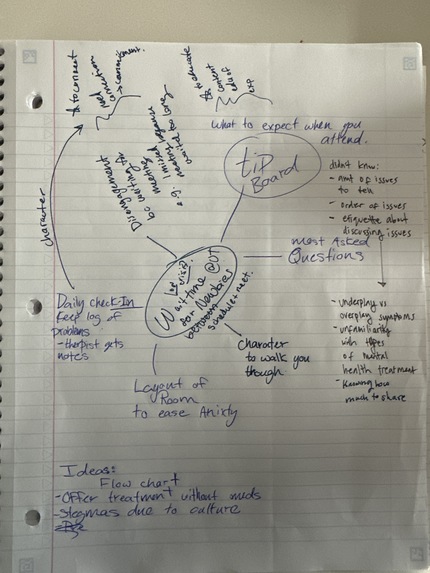 to connect
need
connection
→ commitment.
to educate
the
content
exp
what to expect when you
attend.
tip
Board
Disengagement
bc waiting for
meeting
e.g. missed sequence
nearby
waited too long
didn't know:
- amt of issues
to tell
- order of issues
- etiquette about
discussing issues
character
most Asked
Questions
Wait time @ OT
for Newbies
between
schedule & meet.
Daily check-In
Keep log of
problems
- therpist gets
notes
- underplay vs
overplay symptoms
- unfamiliarity
with types
of mental
health treatment
- Knowing how
much to share
Character
to walk you
though
Layout of
Room
to ease Anixty
Ideas:
Flow chart
- Offer treatment without meds
- Stegmas due to culture